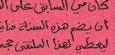 كان من السابق على ال
أن يضم هذه السنة
ليعطي لهذا الملتقى